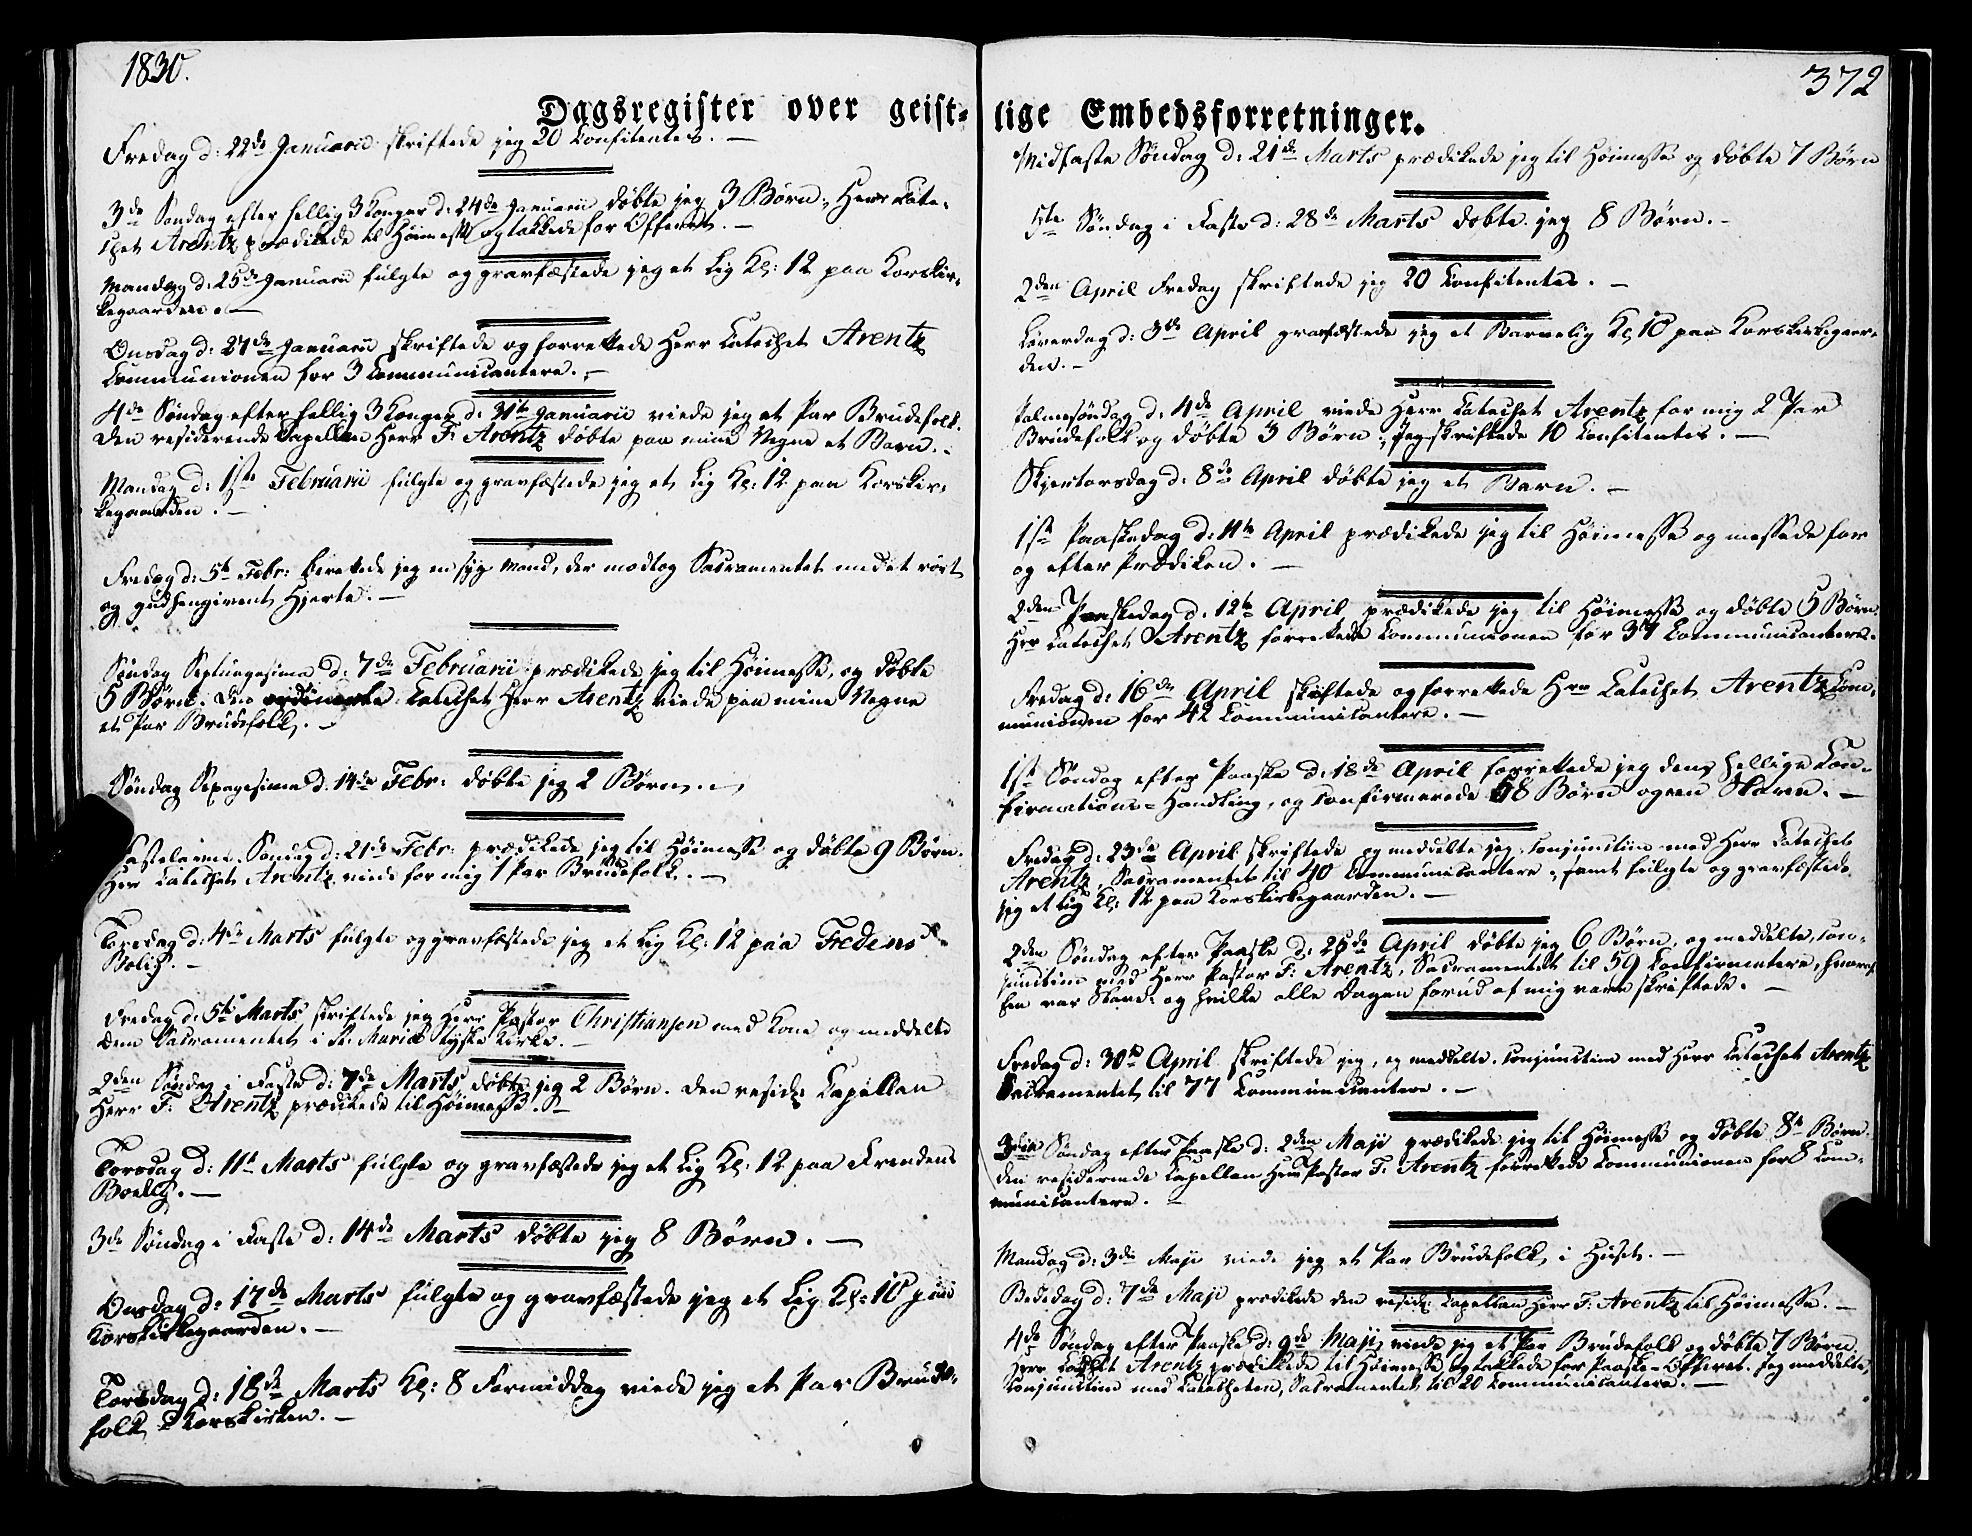 1830.
Dagsregister over geist-
Fredag d: 22de Januarii skriftede jeg 20 Confitentes. —
3de Søndag efter hellig 3 Konger d: 24de Januarii døbte jeg 3 Børn; Herr Cate-
chet Arentz prædikede til Høimesse og takkede for Offeret. —
Mandag d: 25de Januarii fulgte og gravfæstede jeg et Lig Kl: 12 paa Korskir-
kegaarden. —
Onsdag d: 27de Januarii skriftede og forrettede Herr Catechet Arentz
Communionen for 3 Communicantere. —
4de Søndag efter hellig 3 Konger d: 31te Januarii viede jeg et Par Brudefolk.
Den residerende Capellan Herr F: Arentz døbte paa mine Vegne et Barn. —
Mandag d: 1ste Februarii fulgte og gravfæstede jeg et Lig Kl: 12 paa Korskir-
kegaarden. —
Fredag d: 5te Febr: berettede jeg en syg Mand, der modtog Sacramentet med et rørt
og gudhengivent Hjerte. —
Søndag Septuagesima d: 7de Februarii prædikede jeg til Høimesse, og døbte
5 Børn. Den Catechet Herr Arentz viede paa mine Vegne
et Par Brudefolk. —
Søndag Sexagesima d: 14de Febr: døbte jeg 2 Børn. —
Fastelavns Søndag d: 21de Febr: prædikede jeg til Høimesse og døbte 9 Børn.
Herr Catechet Arentz viede for mig 1 Par Brudefolk. —
Torsdag d: 4de Marts fulgte og gravfæstede jeg et Lig Kl: 12 paa Fredens
Bolig. —
Fredag d: 5te Marts skriftede jeg Herr Pastor Christiansen med Kone og meddelte
dem Sacramentet i St. Mariæ tydske Kirke. —
2den Søndag i Faste d: 7de Marts døbte jeg 2 Børn. Den resid: Capellan
Herr F: Arentz prædikede til Høimesse. —
Torsdag d: 11te Marts fulgte og gravfæstede jeg et Lig Kl: 12 paa Fredens
Bolig. —
3de Søndag i Faste d: 14de Marts døbte jeg 8 Børn. —
Onsdag d: 17de Marts fulgte og gravfæstede jeg et Lig Kl: 10 paa
Korskirkegaarden. —
Torsdag d: 18de Marts Kl: 8 Formiddag viede jeg et Par Brude-
folk i Korskirken. —
372
lige Embedsforretninger.
Midfaste Søndag d: 21de Marts prædikede jeg til Høimesse og døbte 7 Børn
5te Søndag i Faste d: 28de Marts døbte jeg 8 Børn. —
2den April Fredag skriftede jeg 20 Confitentes. —
Løverdag d: 3de April gravfæstede jeg et Barnelig Kl 10 paa Korskirkegaar-
den. —
Palmesøndag d: 4de April viede Herr Catechet Arentz for mig 2 Par
Brudefolk og døbte 3 Børn; Jeg skriftede 10 Confitentes. —
Skjertorsdag d: 8de April døbte jeg et Barn. —
1ste Paaskedag d: 11te April prædikede jeg til Høimesse og messede for
og efter Prædiken. —
2den Paaskedag d. 12te April prædikede jeg til Høimesse og døbte 5 Børn.
Herr Catechet Arentz forrettede Communionen for 37 Communicantere.
Fredag d: 16de April skriftede og forrettede Herr Catechet Arentz Com-
munionen for 42 Communicantere. —
1ste Søndag efter Paaske d: 18de April forrettede jeg den hellige Con-
firmations-Handling, og confirmerede 58 Børn og en Slave. —
Fredag d: 23de April skriftede og meddelte jeg, conjunctim med Herr Catechet
Arentz, Sacramentet til 40 Communicantere; samt fulgte og gravfæstede
jeg et Lig Kl: 12 paa Korskirkegaarden. —
2den Søndag efter Paaske d: 25de April døbte jeg 6 Børn, og meddelte, con-
junctim med Herr Pastor F: Arentz, Sacramentet til 59 Confirmatere, hvoraf
een var Slave: og hvilke alle Dagen forud af mig vare skriftede. —
Fredag d: 30te April skriftede jeg, og meddelte conjunctim med Herr Catechet Arentz
Sacramentet til 77 Communicantere. —
3die Søndag efter Paaske d: 2den Maji prædikede jeg til Høimesse og døbte 8te Børn.
Den residerende Capellan Herr Pastor F: Arentz forrettede Communionen for 8 Com-
municantere. —
Mandag d: 3die Maji viede jeg et Par Brudefolk i Huset. —
Bededag d: 7de Maji prædikede den resid: Capellan Herr F: Arentz til Høimesse. —
4de Søndag efter Paaske d: 9de Maji viede jeg et Par Brudefolk og døbte 7 Børn.
Herr Catechet Arentz prædikede til Høimesse og takkede for Paaske-Offeret. Jeg meddelte,
conjunctim med Catecheten, Sacramentet til 20 Communicantere. —